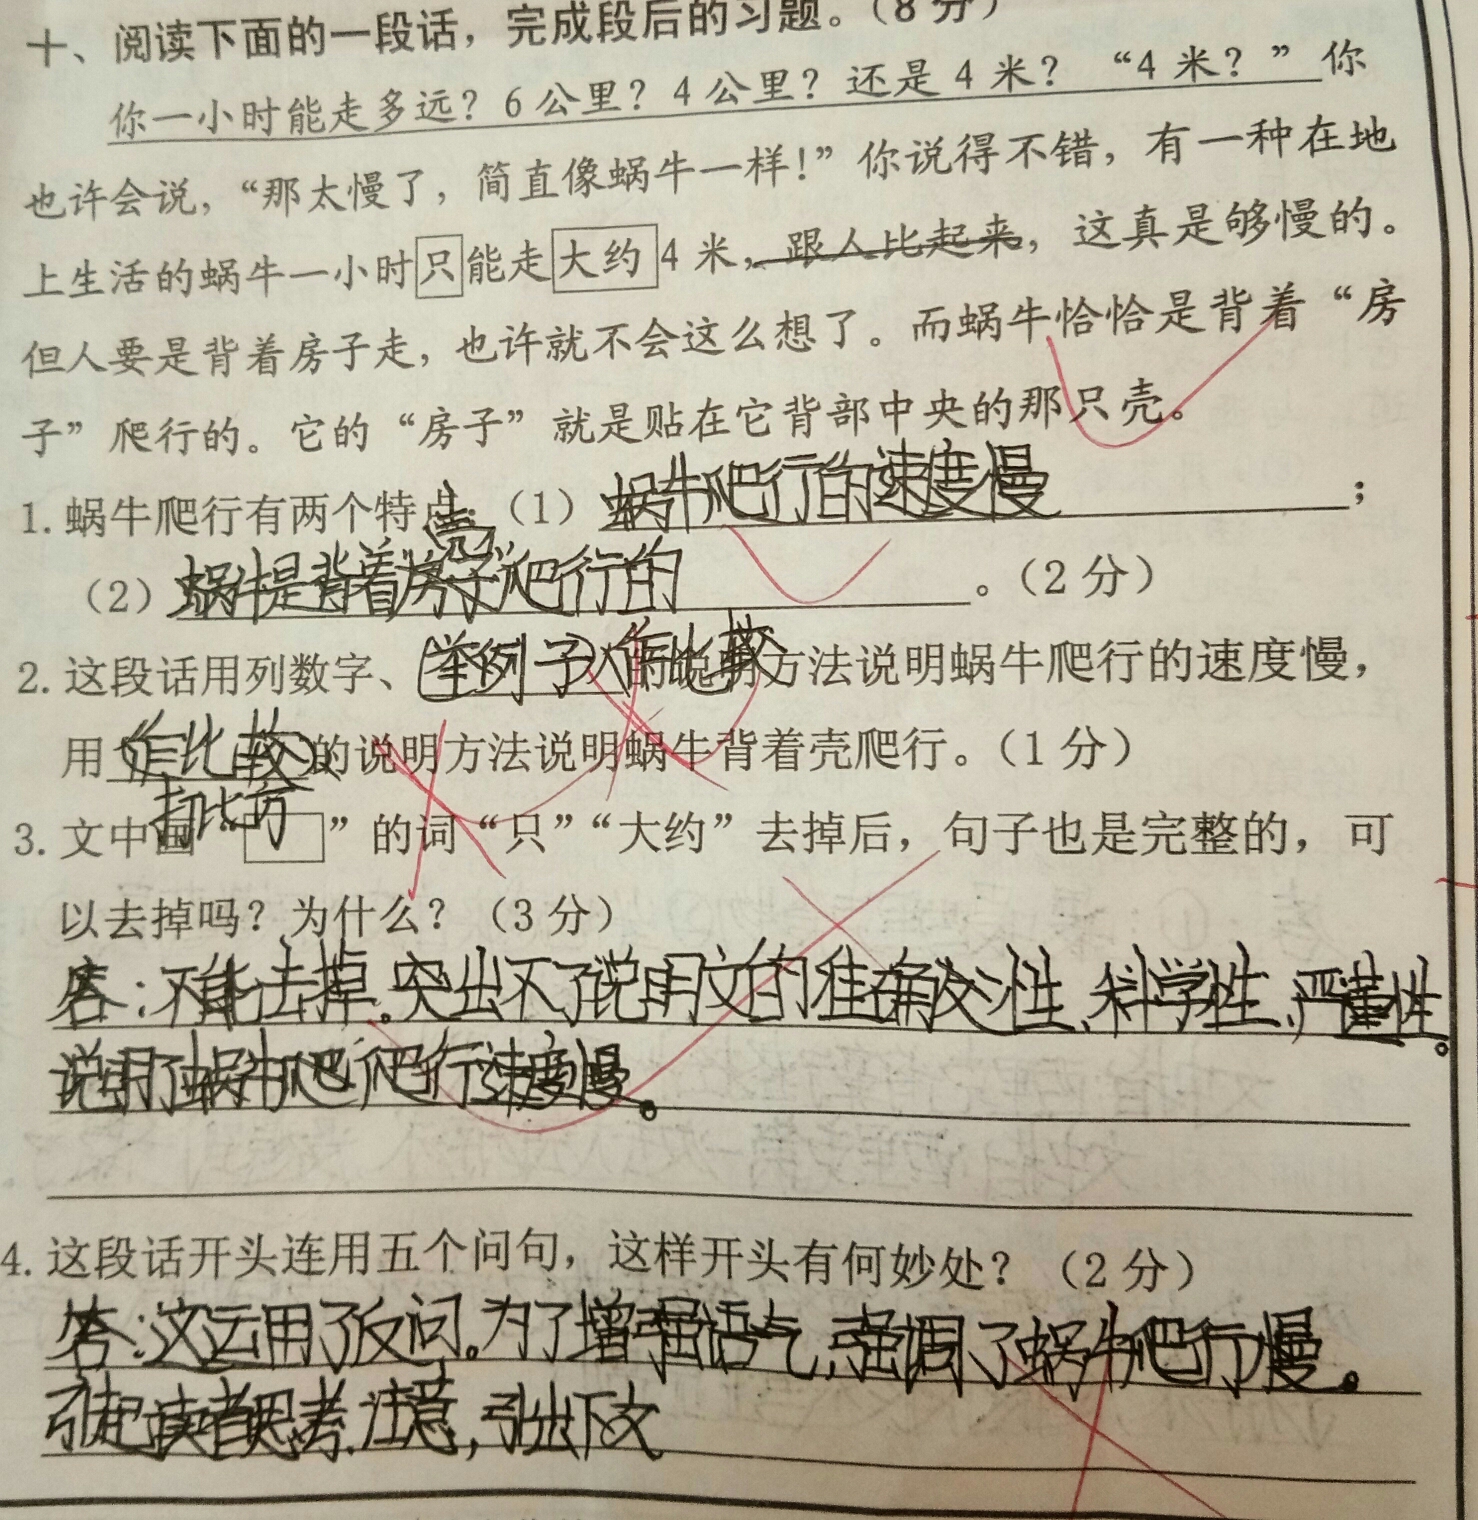 十、阅读下面的一段话，完成段后的习题。（8分）
你一小时能走多远？6公里？4公里？还是4米？“4米？”你
也许会说，“那太慢了，简直像蜗牛一样！”你说得不错，有一种在地
上生活的蜗牛一小时只能走大约4米，跟人比起来，这真是够慢的。
但人要是背着房子走，也许就不会这么想了。而蜗牛恰恰是背着“房
子”爬行的。它的“房子”就是贴在它背部中央的那只壳。
1.蜗牛爬行有两个特点：（1）蜗牛爬行的速度慢；
壳
（2）蜗牛是背着“房子”爬行的。（2分）
2.这段话用列数字、（举例子）作比较的说明方法说明蜗牛爬行的速度慢，
用作比较的说明方法说明蜗牛背着壳爬行。（1分）
打比方
3.文中画“□”的词“只”“大约”去掉后，句子也是完整的，可
以去掉吗？为什么？（3分）
答：不能去掉。突出不了说明文的准确性、科学性、严谨性。
说明了蜗牛爬行速度慢。
4.这段话开头连用五个问句，这样开头有何妙处？（2分）
答：这运用了反问。为了增强语气，强调了蜗牛爬行慢。
引起读者思考.注意，引出下文